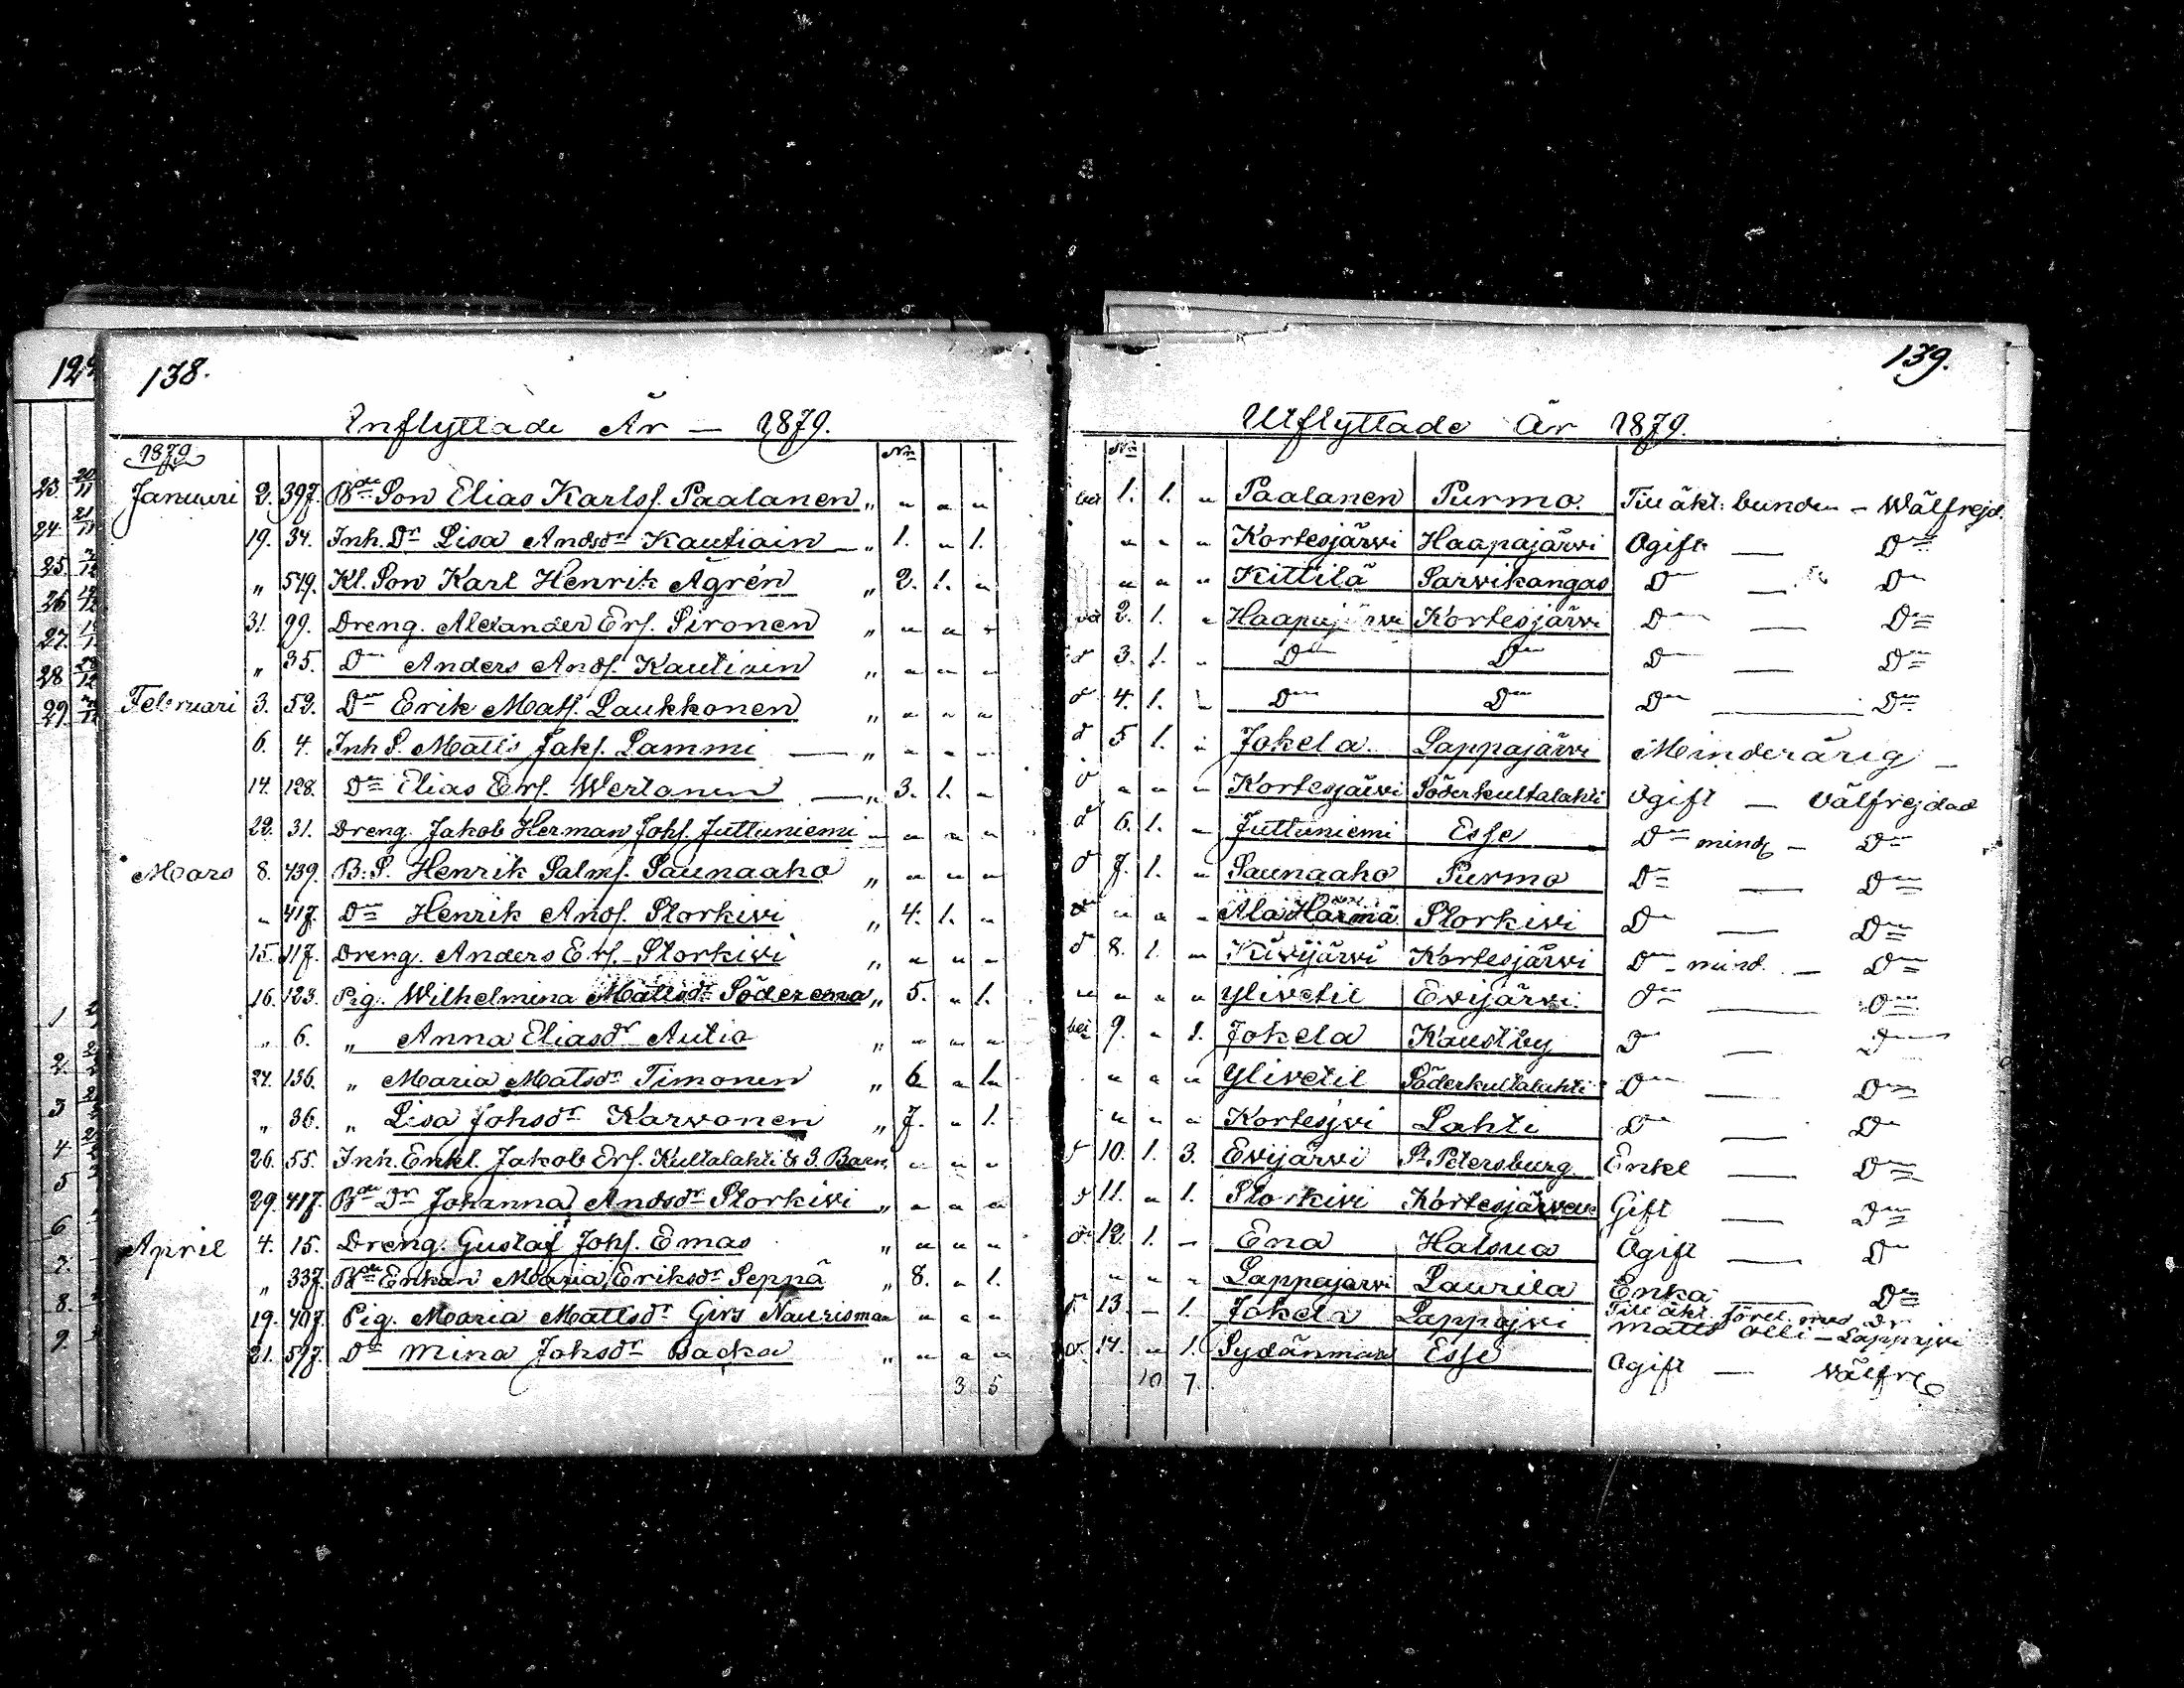 124
138.
Inflyttade År — 1879.
1879
No
Januari 2. 397. Bde Son Elias Karlsf. Paalanen „ „ „ „
19. 34. Inh. Dr Lisa Andsdr Kautiain — „ 1. „ 1.
„ 549. Kl. Son Karl Henrik Ågrén „ 2. 1. „
31. 99. Dreng. Alexander Erf. Sironen „ „ „ „
„ 35. Do Anders Andf. Kautiain „ „ „ „
Februari 3. 52. Do Erik Matf. Laukkonen „ „ „ „
6. 4. Inh S. Matts Jakf. Lammi — „ „ „ „
14. 128. Do Elias Erf. Wertanen — „ 3. 1. „
22. 31. Dreng. Jakob Herman Johf. Juttuniemi „ „ „ „
Mars 8. 439. B. S. Henrik Salmf. Saunaaho „ „ „ „
„ 417. Do Henrik Andf. Storkivi „ 4. 1. „
15. 117. Dreng. Anders Erf. Storkivi „ „ „ „
16. 123. Pig. Wilhelmina Mattsdr Söderena „ 5. „ 1.
„ 6. „ Anna Eliasdr Autio „ „ „ „
24. 136. „ Maria Matsdr Timonen „ 6 „ 1.
„ 36. „ Lisa Johsdr Karvonen „ 7. „ 1.
26. 55. Inh. Enkl. Jakob Erf. Kultalahti & 3. Barn „ „ „
29. 417. Bde Dr Johanna Andsdr Storkivi „ „ „ „
April 4. 15. Dreng. Gustaf Johf. Emas „ „ „ „
„ 337. Bde Enkan Maria Eriksdr Seppä „ 8. „ 1.
19. 407. Pig. Maria Mattsdr Girs Naurisma „ „ „
21. 517. Do Mina Jaksdr Backa „ „ „ „
3 5
139.
Utflyttade År 1879.
No
1. 1. „ Paalanen Purmo. Till äkt: bunden — Wälfrejd.
„ „ „ Kortesjärvi Haapajärvi Ogift — Do
„ „ „ Kittilä Sarvikangas Do — Do
2. 1. „ Haapajärvi Kortesjärvi Do — Do
3. 1. „ Do Do Do — Do
4. 1. „ Do Do Do — Do
5 1. „ Jokela. Lappajärvi Minderårig —
„ „ „ Kortesjärvi Söderkultalahti Ogift — Välfrejdad
6. 1. „ Juttuniemi Esse Do mind — Do
7. 1. „ Saunaaho Purmo Do — Do
„ „ „ Ala Härmä Storkivi Do — Do
8. 1. „ Kivijärvi Kortesjärvi Do mind. — Do
„ „ „ „ Ylivetil Evijärvi Do — Do
9. „ 1. Jokela Kaustby Do — Do
„ „ „ Ylivetil Söderkultalahti Do — Do
„ „ „ Kortesjvi Lahti Do — Do
10. 1. 3. Evijärvi St. Petersburg Enkel — Do
11. „ 1. Storkivi Kortesjärvi Gift — Do
12. 1. — Ena Halsua Ogift — Do
„ „ „ Lappajärvi Laurila Enka — Do
13. — 1. Jokela Lappajvi Till äkt. fören. med Dr
Matts Olli — Lappajvi
14. „ 1. Sydänmaa Esse Ogift — Välfre
10 7.